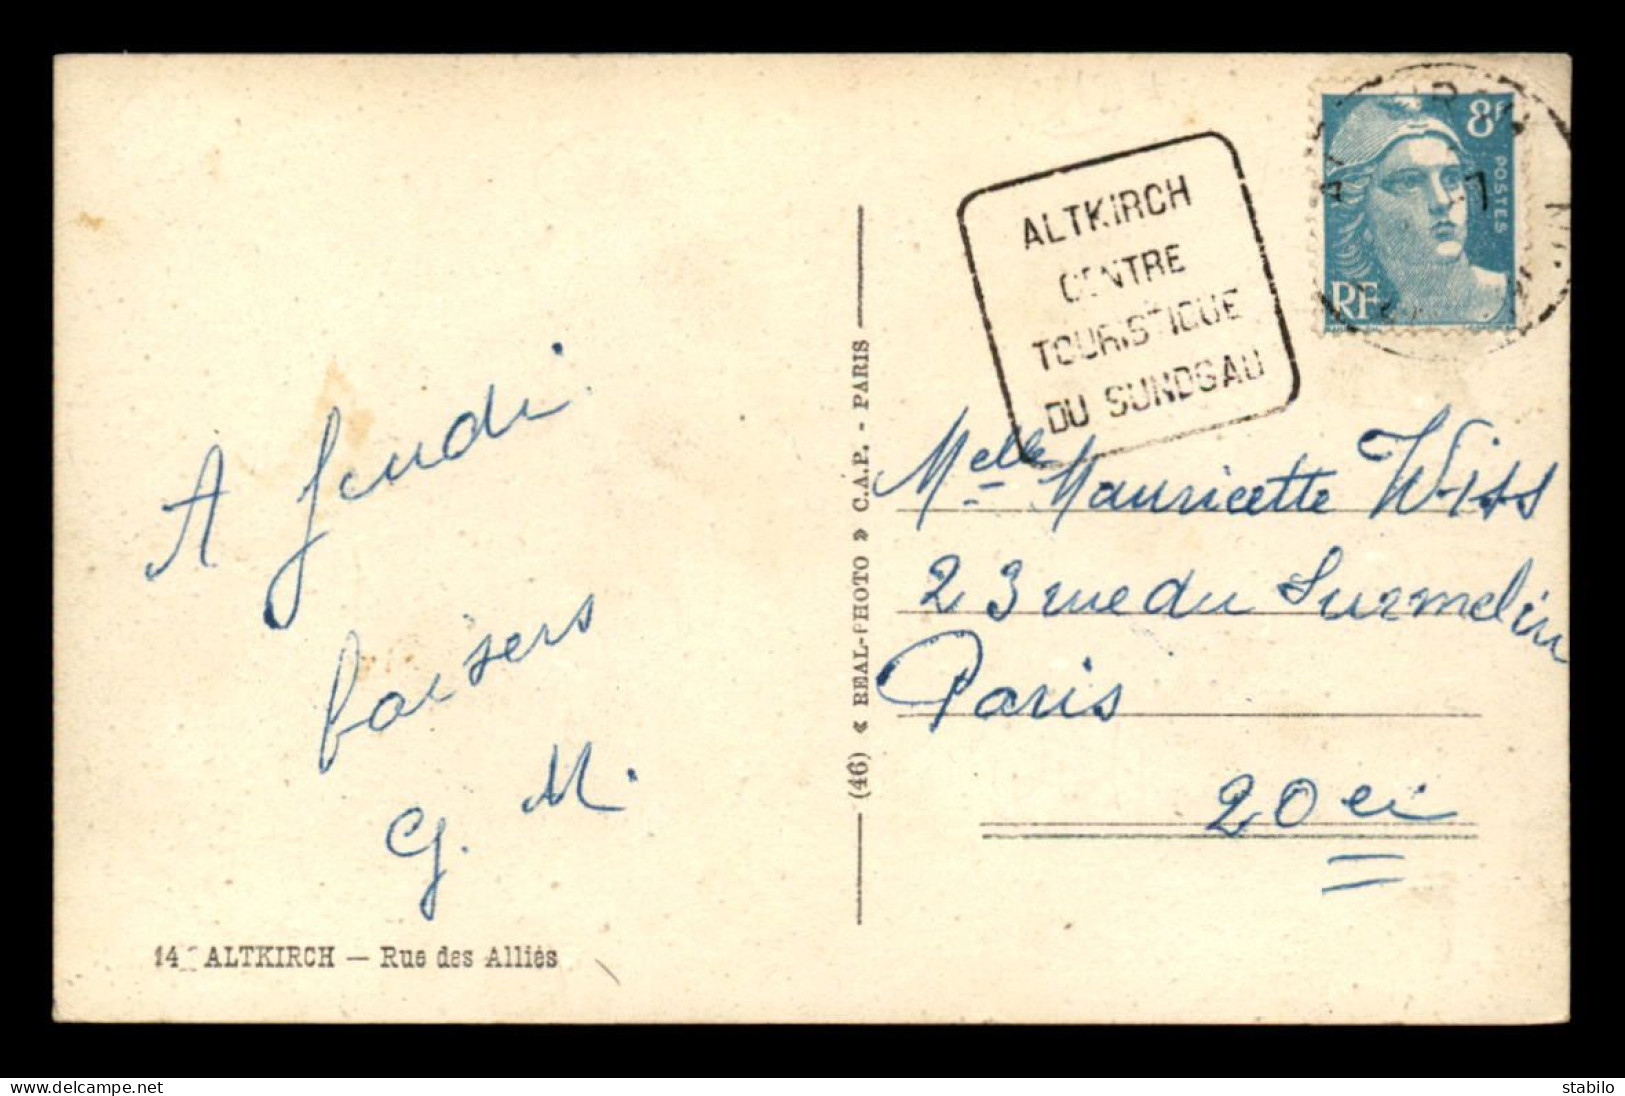 A Jeudi
baisers
G. M.
14 ALTKIRCH — Rue des Alliés
(46) « REAL-PHOTO » C.A.P. - PARIS
ALTKIRCH
CENTRE
TOURISTIQUE
DU SUNDGAU
8F
POSTES
RF
Melle Mauricette Wiss
23 rue du Surmelin
Paris
20 e
www.delcampe.net
stabilo